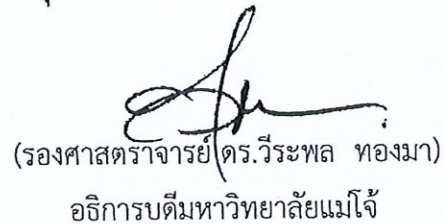 (รองศาสตราจารย์ ดร.วีระพล ทองมา)
อธิการบดีมหาวิทยาลัยแม่โจ้